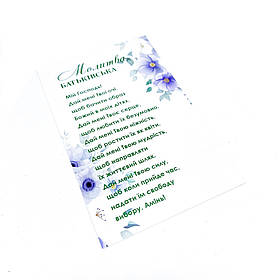 Молитва
БАТЬКІВСЬКА
Мій Господи!
Дай мені Твої очі,
щоб бачити образ
Божий в моїх дітях.
Дай мені Твоє серце,
щоб любити їх безумовно.
Дай мені Твою ніжність,
щоб ростити їх як квіти.
Дай мені Твою мудрість,
щоб направляти
їх життєвий шлях.
Дай мені Твою силу,
щоб коли прийде час,
надати їм свободу
вибору, Амінь!